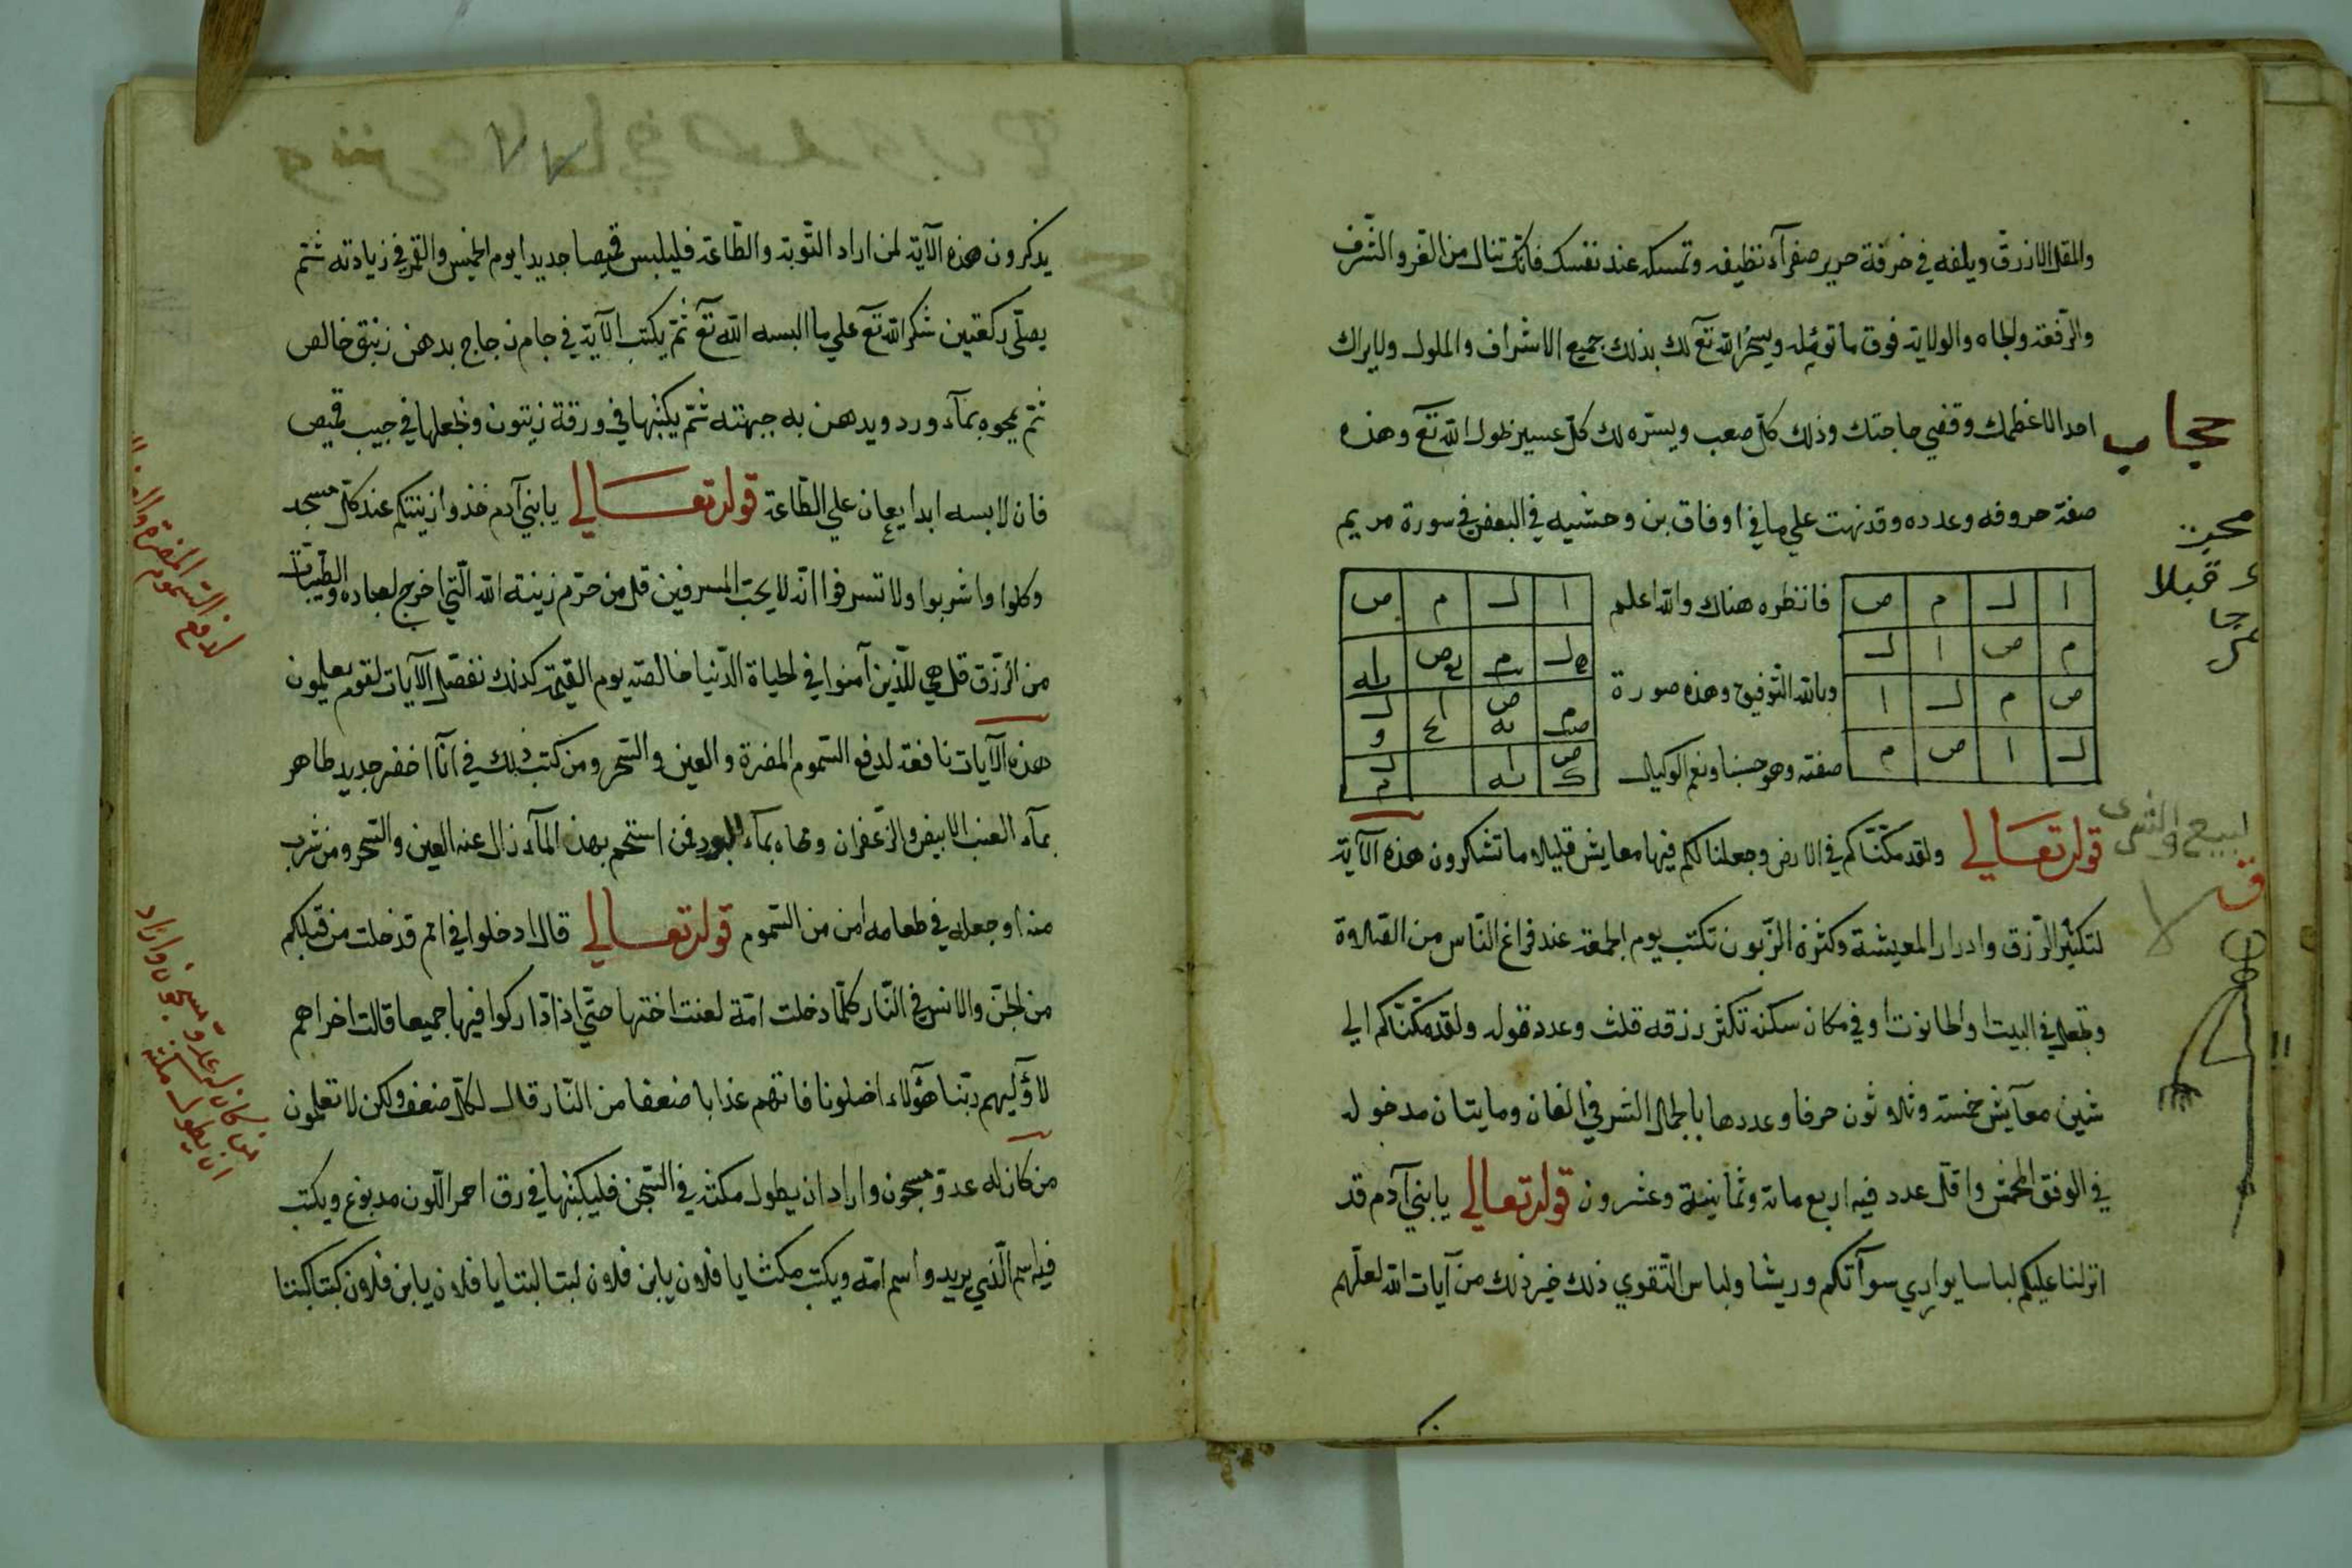 والمقل الازرق ويلفه في خرقة حرير صفرآء نظيفه وتمسكه عند نفسك فانّك تنال من العزّ والشّرف
والرّفعة والجاه والولاية فوق ما تؤمله ويسخر الله تع لك بذلك جميع الاشراف والملوك ولا يراك
احد الا عظمك وقضي حاجتك وذلك كلّ صعب ويسّره لك كلّ عسير بحول الله تع وهذه
حجاب
صفة حروفه وعدده وقد نبهت علي ما في اوفاق بن وحشيه في البعض في سورة مريم
ا ل م ص
م ص ا ل
ص م ل ا
ل ا ص م
فانظره هناك والله اعلم
وبالله التّوفيق وهذه صورة
صفته وهو حسبنا ونعم الوكيل
ا ل م ص
لبيع والشرى
قوله تعالي ولقد مكّنّاكم في الارض وجعلنا لكم فيها معايش قليلا ما تشكرون هذه الآية
لتكثير الرّزق وادرار المعيشة وكثرة الزّبون تكتب يوم الجمعة عند فراغ النّاس من الصّلاة
وتجعل في البيت او الحانوت او في مكان سكنه تكثر رزقه قلت وعدد قوله ولقد مكّنّاكم الي
شين معآيش خمسة وثلاثون حرفا وعددها بالجمل الشرفي الفان ومايتان مدخوله
في الوفق المخمّس واقلّ عدد فيه اربع مائة وثمانية وعشرون قوله تعالي يا بني آدم قد
انزلنا عليكم لباسا يواري سوآتكم وريشا ولباس التّقوي ذلك خير ذلك من آيات الله لعلّهم
يذكرون هذه الآية لمن اراد التّوبة والطّاعة فليلبس قميصا جديدا يوم الخميس والقمر في زيادته ثمّ
يصلّي ركعتين شكر الله تع علي ما البسه الله تع ثمّ يكتب الآية في جام زجاج بدهن زنبق خالص
ثمّ يمحوه بمآء ورد ويدهن به جبهته ثمّ يكتبها في ورقة زيتون وتجعلها في جيب قميص
فان لابسه ابدا يعان علي الطّاعة قوله تعالي يا بني آدم خذوا زينتكم عند كلّ مسجد
وكلوا واشربوا ولا تسرفوا انّه لا يحبّ المسرفين قل من حرّم زينة الله الّتي اخرج لعباده والطّيّبات
من الرّزق قل هي للّذين آمنوا في الحياة الدّنيا خالصة يوم القيمة كذلك نفصّل الآيات لقوم يعلمون
هذه الآيات نافعة لدفع السّموم المضرة والعين والسّحر ومن كتب ذلك في انآء اخضر جديد طاهر
بمآء العنب الابيض والزّعفران ومحاه بمآء البرد فمن استحم بهذا المآء زال عنه العين والسّحر ومن شرب
منه او جعله في طعامه امن من السّموم قوله تعالي قال ادخلوا في امم قد خلت من قبلكم
من الجنّ والانس في النّار كلّما دخلت امّة لعنت اختها حتّي اذا ادّاركوا فيها جميعا قالت اخراهم
لاوليهم ربّنا هؤلاء اضلونا فاتهم عذابا ضعفا من النّار قال لكلّ ضعف ولكن لا تعلمون
من كان له عدوّ مسجون واراد ان يطول مكثه في السّجن فليكتبها في رق احمر اللّون مدبوغ ويكتب
فيه اسم الّذي يريد واسم امّه ويكتب مكثا يا فلان يا بن فلان لبثا لبثا يا فلان يا بن فلان كبتا كبتا
لدفع السّموم المضرة
من كان له عدوّ مسجون واراد
ان يطول مكثه